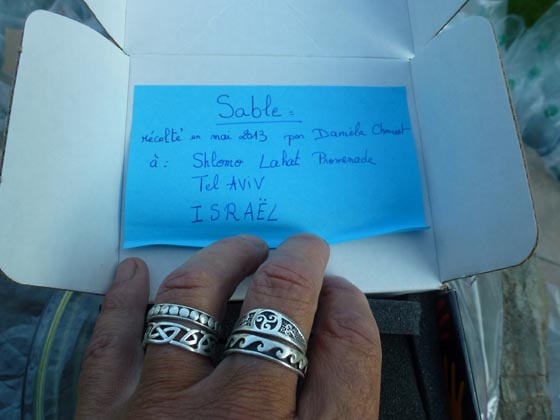 Sable :
récolté en mai 2013 par Danièla
à : Shlomo Lahat Promenade
Tel AVIV
ISRAËL